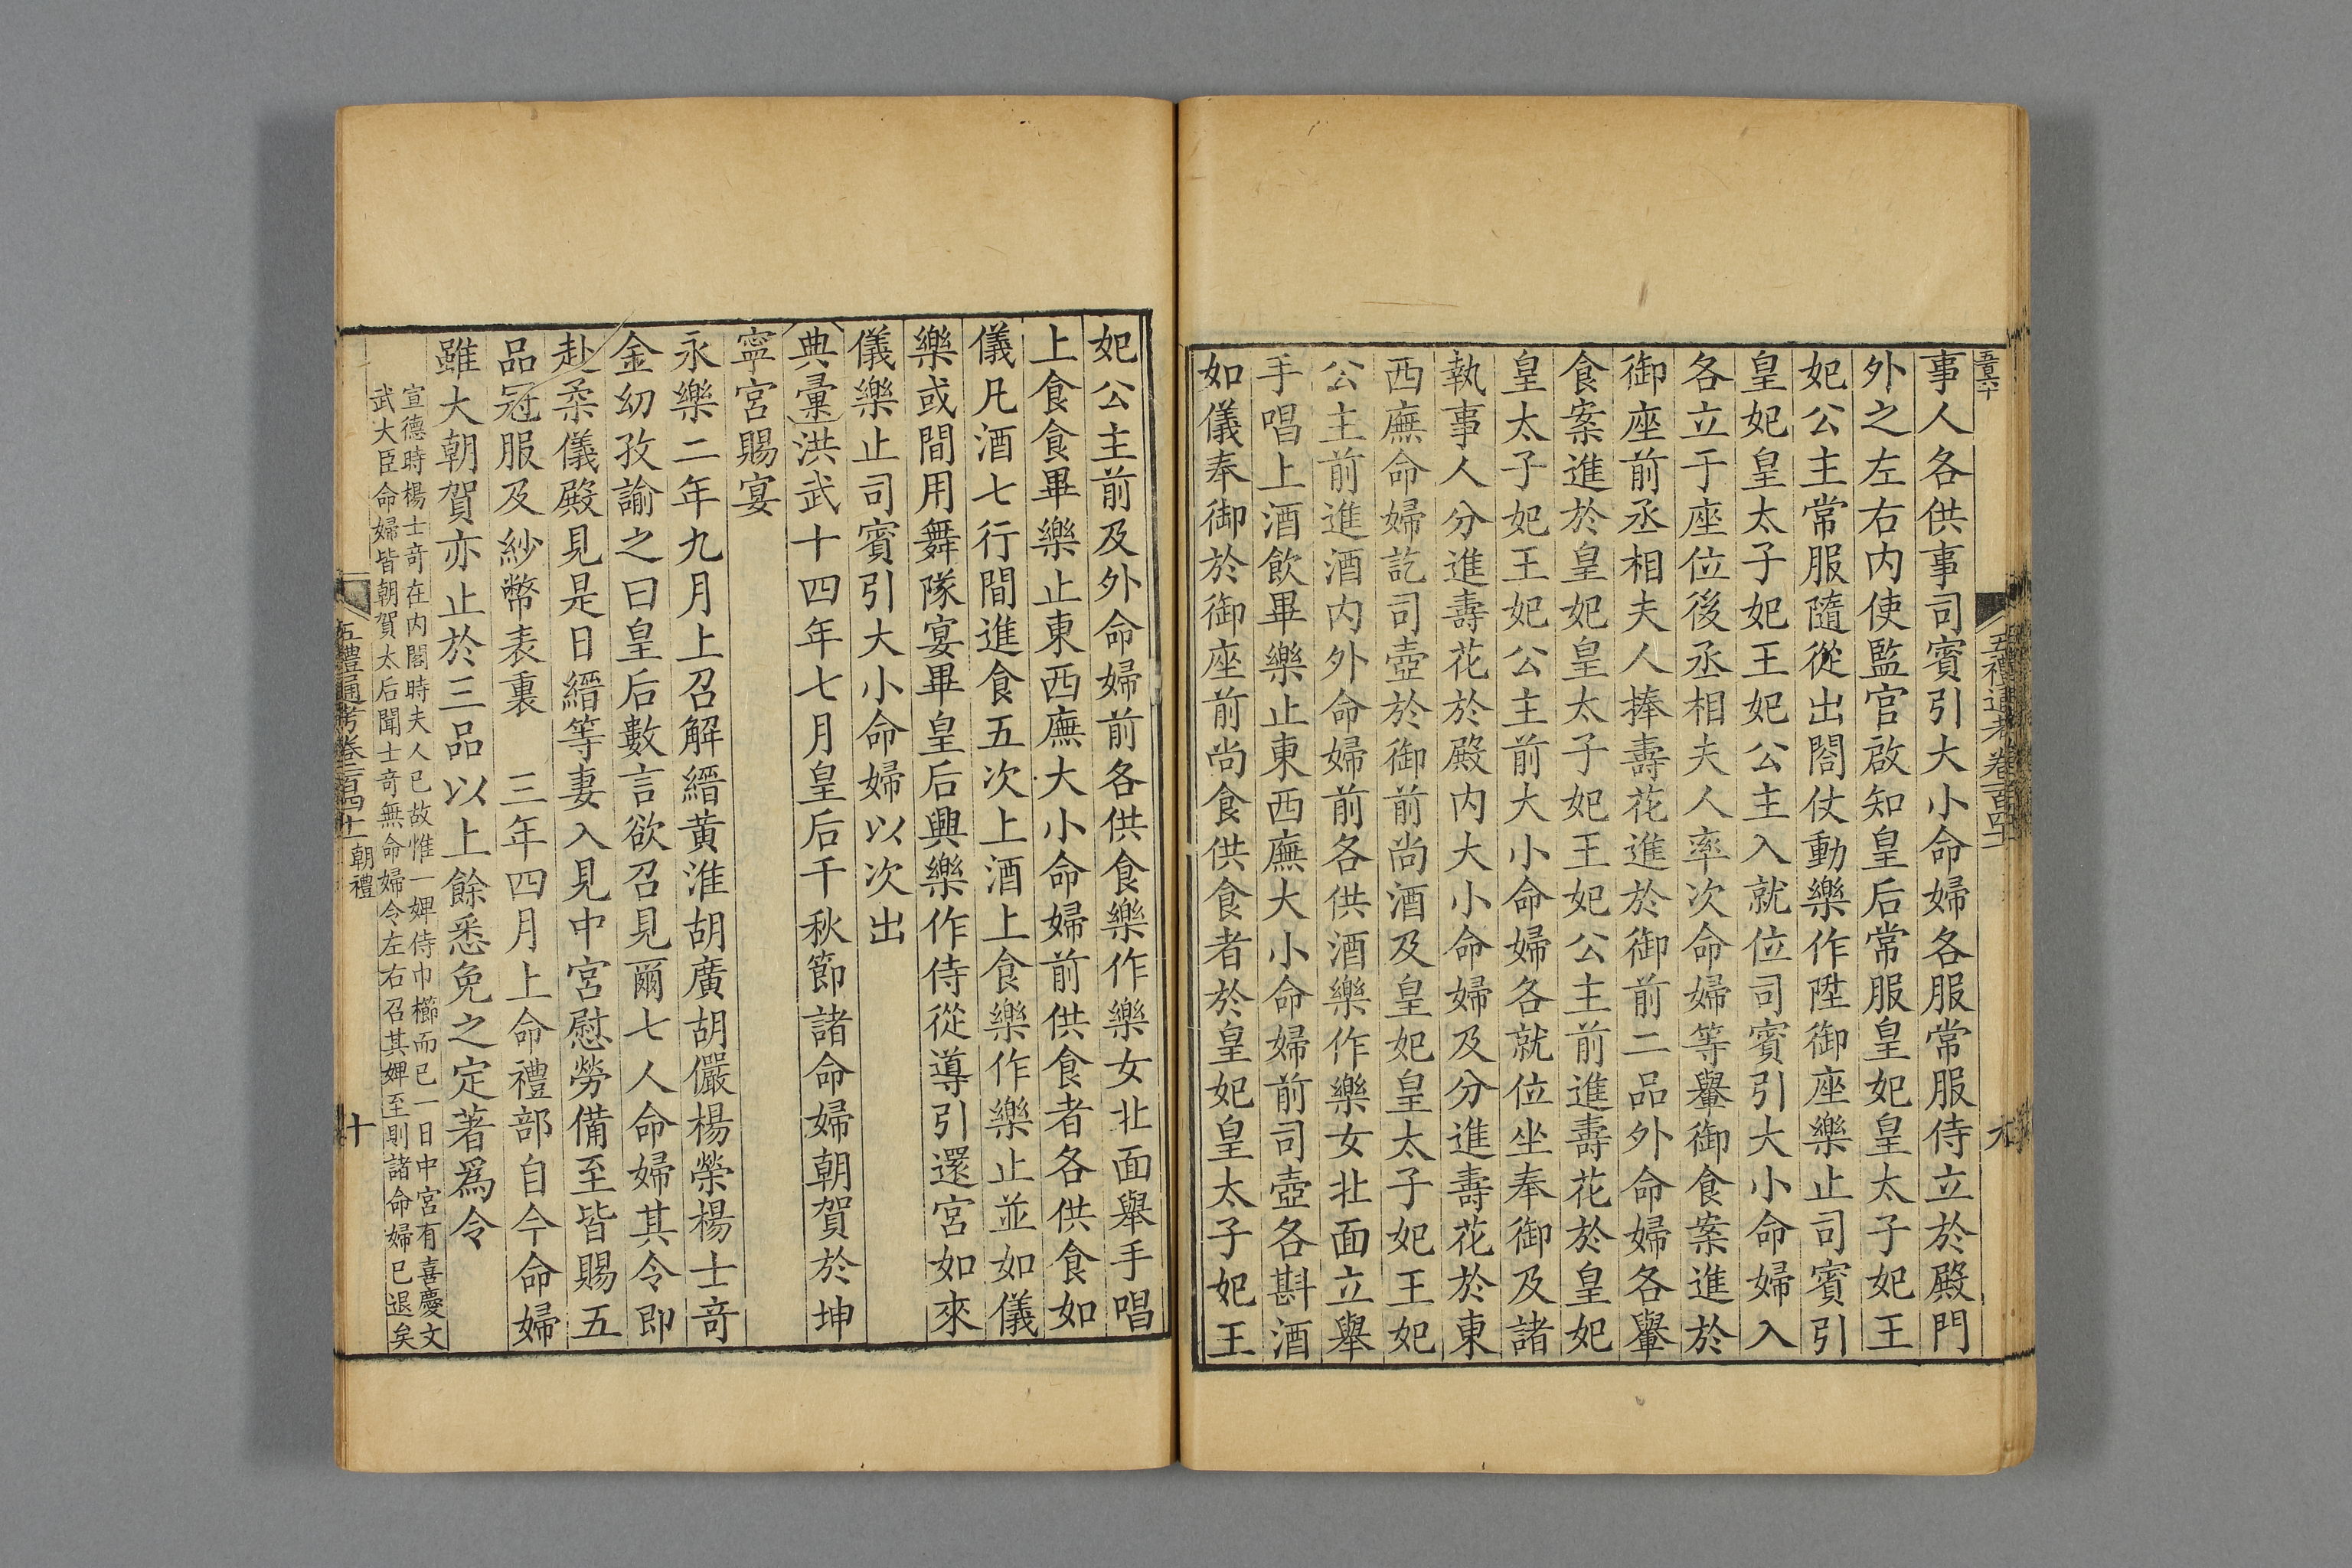 事人各供事司賓引大小命婦各服常服侍立於殿門
外之左右内使監官啟知皇后常服皇妃皇太子妃王
妃公主常服隨從出閤仗動樂作陞御座樂止司賓引
皇妃皇太子妃王妃公主入就位司賓引大小命婦入
各立于座位後丞相夫人率次命婦等轝御食案進於
御座前丞相夫人捧壽花進於御前二品外命婦各轝
食案進於皇妃皇太子妃王妃公主前進壽花於皇妃
皇太子妃王妃公主前大小命婦各就位坐奉御及諸
執事人分進壽花於殿内大小命婦及分進壽花於東
西廡命婦訖司壺於御前尚酒及皇妃皇太子妃王妃
公主前進酒内外命婦前各供酒樂作樂女北面立舉
手唱上酒飲畢樂止東西廡大小命婦前司壺各斟酒
如儀奉御於御座前尚食供食者於皇妃皇太子妃王
妃公主前及外命婦前各供食樂作樂女北面舉手唱
上食食畢樂止東西廡大小命婦前供食者各供食如
儀凡酒七行間進食五次上酒上食樂作樂止並如儀
樂或間用舞隊宴畢皇后興樂作侍從導引還宮如來
儀樂止司賓引大小命婦以次出
典彙洪武十四年七月皇后千秋節諸命婦朝賀於坤
寧宮賜宴
永樂二年九月上召解縉黄淮胡廣胡儼楊榮楊士竒
金幼孜諭之曰皇后數言欲召見爾七人命婦其令即
赴柔儀殿見是日縉等妻入見中宮慰勞備至皆賜五
品冠服及紗幣表裏　三年四月上命禮部自今命婦
雖大朝賀亦止於三品以上餘悉免之定著爲令
宣德時楊士竒在内閣時夫人已故惟一婢侍巾櫛而已一日中宮有喜慶文
武大臣命婦皆朝賀太后聞士竒無命婦令左右召其婢至則諸命婦已退矣
五禮通考卷二百四十一 朝禮
十